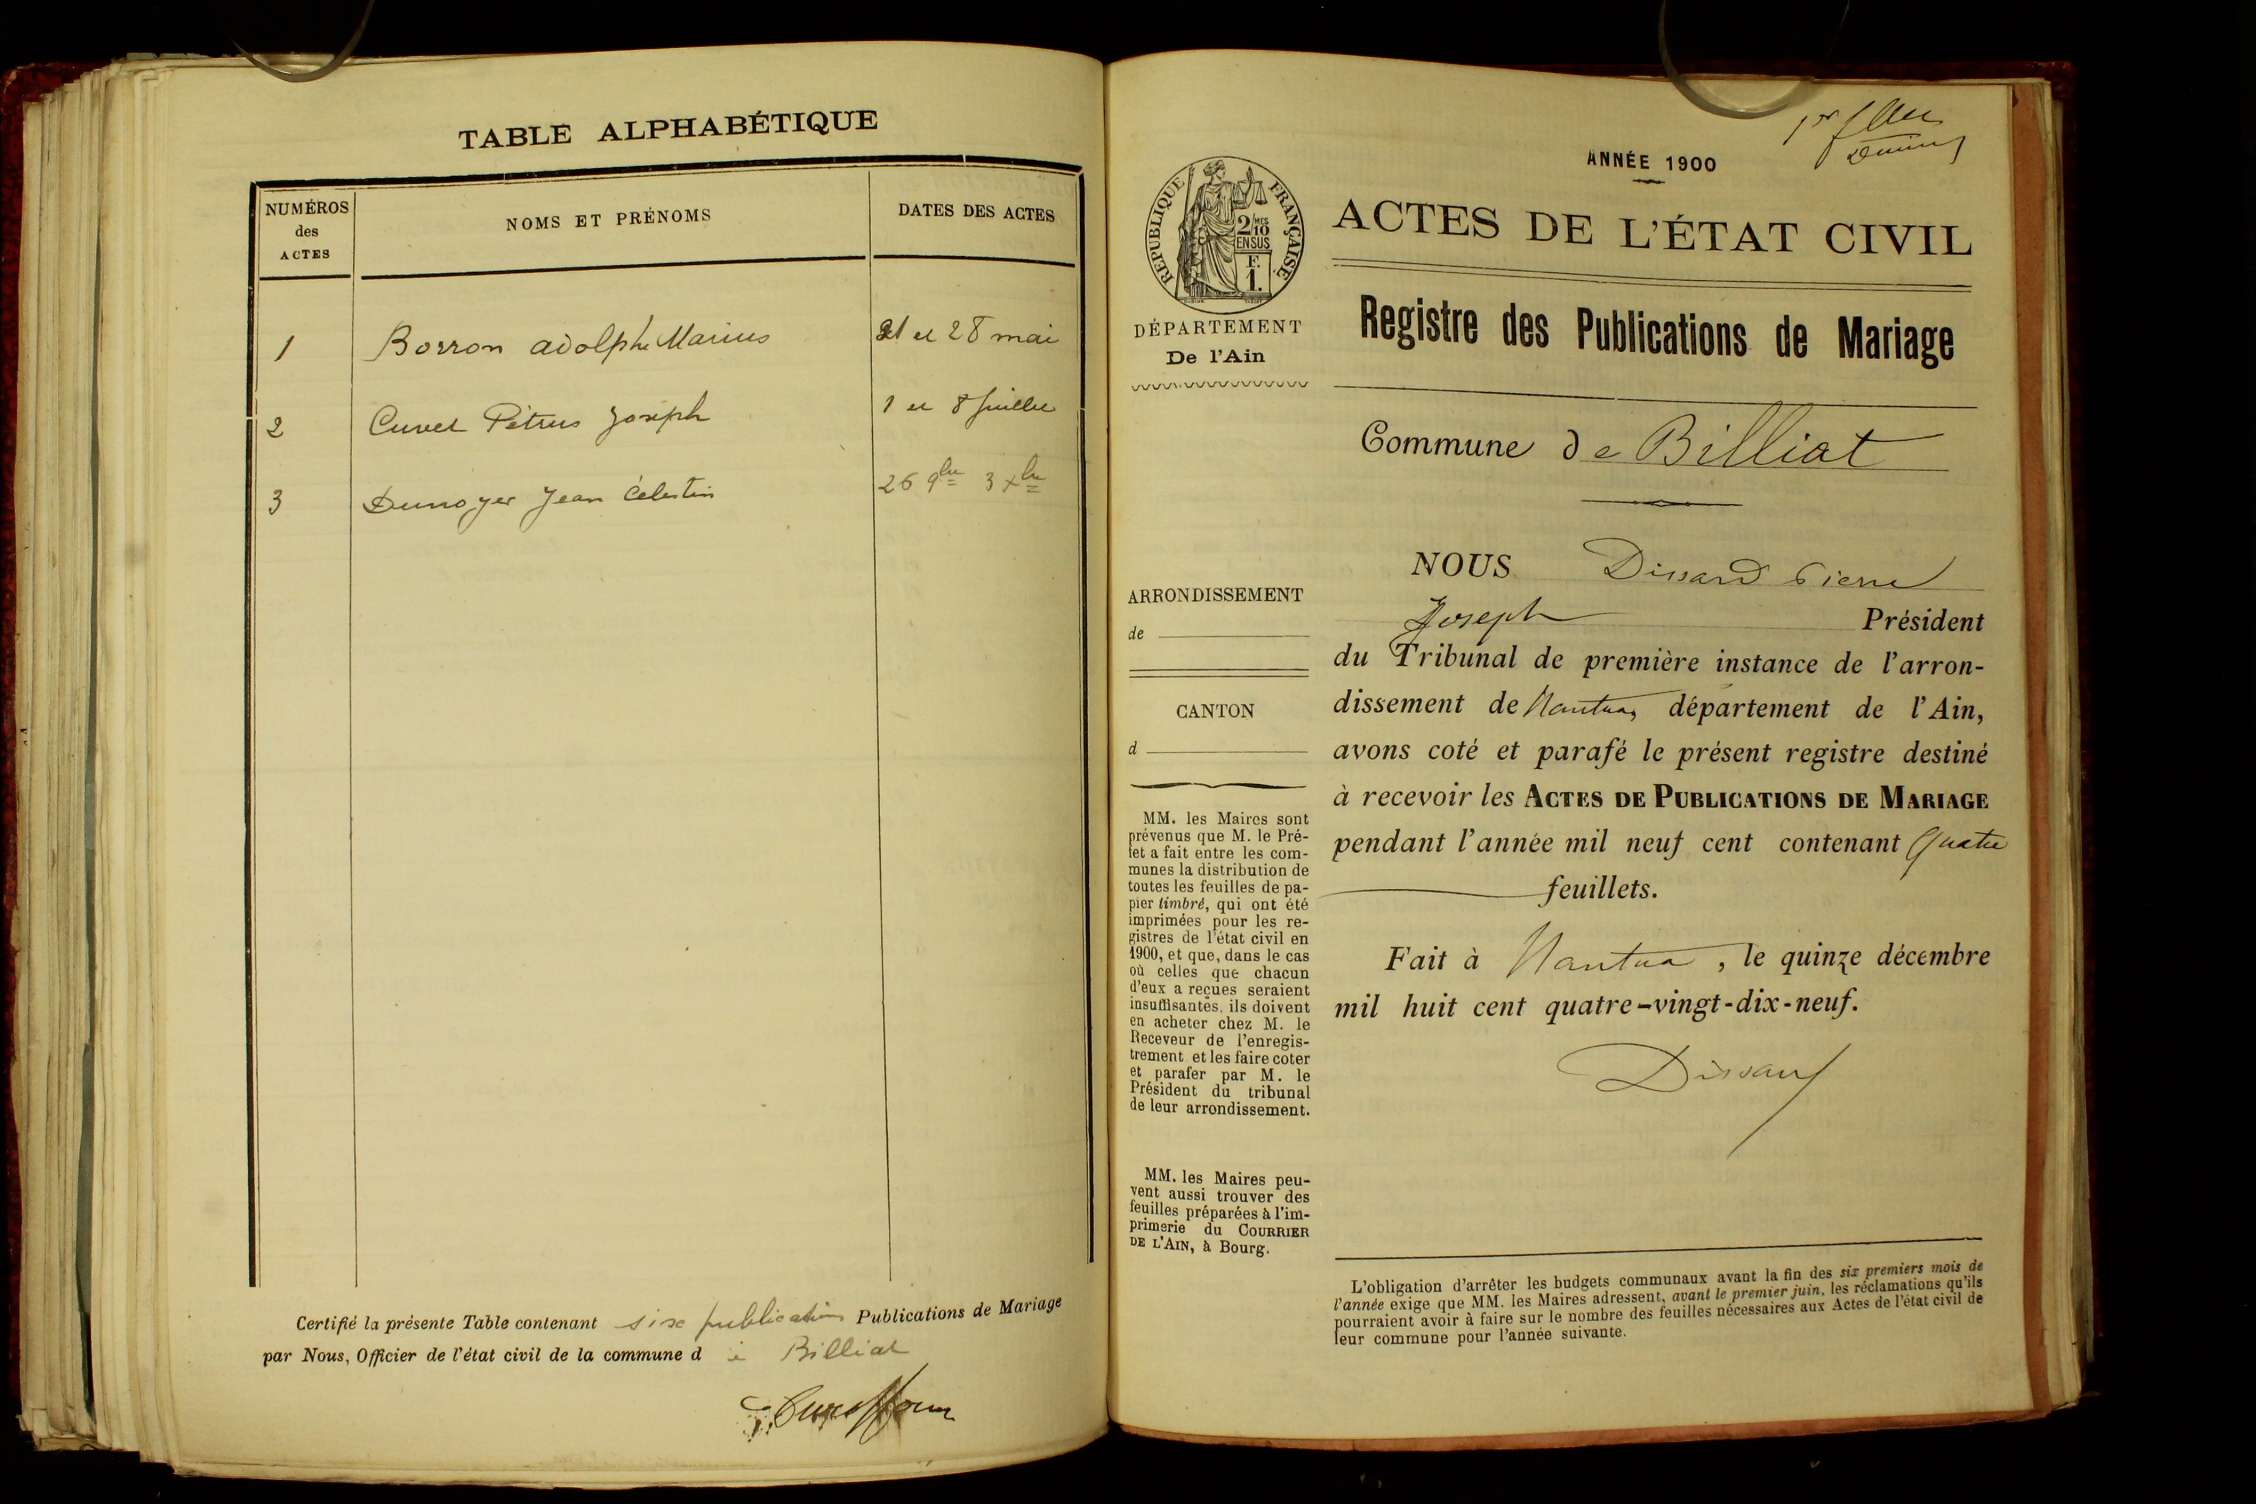 TABLE ALPHABÉTIQUE
NUMÉROS des ACTES
NOMS ET PRÉNOMS
DATES DES ACTES
1 Borron adolphe Marius 21 et 28 mai
2 Cuvet Pétrus Joseph 1 et 8 juillet
3 Dunoyer Jean Célestin 26 9bre 3 xbre
Certifié la présente Table contenant six publications Publications de Mariage
par Nous, Officier de l'état civil de la commune d Billiat
1er
ANNÉE 1900
RÉPUBLIQUE FRANÇAISE
2/10
EN SUS
F.
1.
ACTES DE L'ÉTAT CIVIL
DÉPARTEMENT
De l'Ain
Registre des Publications de Mariage
Commune de Billiat
ARRONDISSEMENT
de
CANTON
d
MM. les Maires sont
prévenus que M. le Pré-
fet a fait entre les com-
munes la distribution de
toutes les feuilles de pa-
pier timbré, qui ont été
imprimées pour les re-
gistres de l'état civil en
1900, et que, dans le cas
où celles que chacun
d'eux a reçues seraient
insuffisantes, ils doivent
en acheter chez M. le
Receveur de l'enregis-
trement et les faire coter
et parafer par M. le
Président du tribunal
de leur arrondissement.
MM. les Maires peu-
vent aussi trouver des
feuilles préparées à l'im-
primerie du COURRIER
DE L'AIN, à Bourg.
NOUS Dissard Pierre
Joseph Président
du Tribunal de première instance de l'arron-
dissement de Nantua, département de l'Ain,
avons coté et parafé le présent registre destiné
à recevoir les ACTES DE PUBLICATIONS DE MARIAGE
pendant l'année mil neuf cent contenant quatre
feuillets.
Fait à Nantua, le quinze décembre
mil huit cent quatre-vingt-dix-neuf.
Dissard
L'obligation d'arrêter les budgets communaux avant la fin des six premiers mois de
l'année exige que MM. les Maires adressent, avant le premier juin, les réclamations qu'ils
pourraient avoir à faire sur le nombre des feuilles nécessaires aux Actes de l'état civil de
leur commune pour l'année suivante.